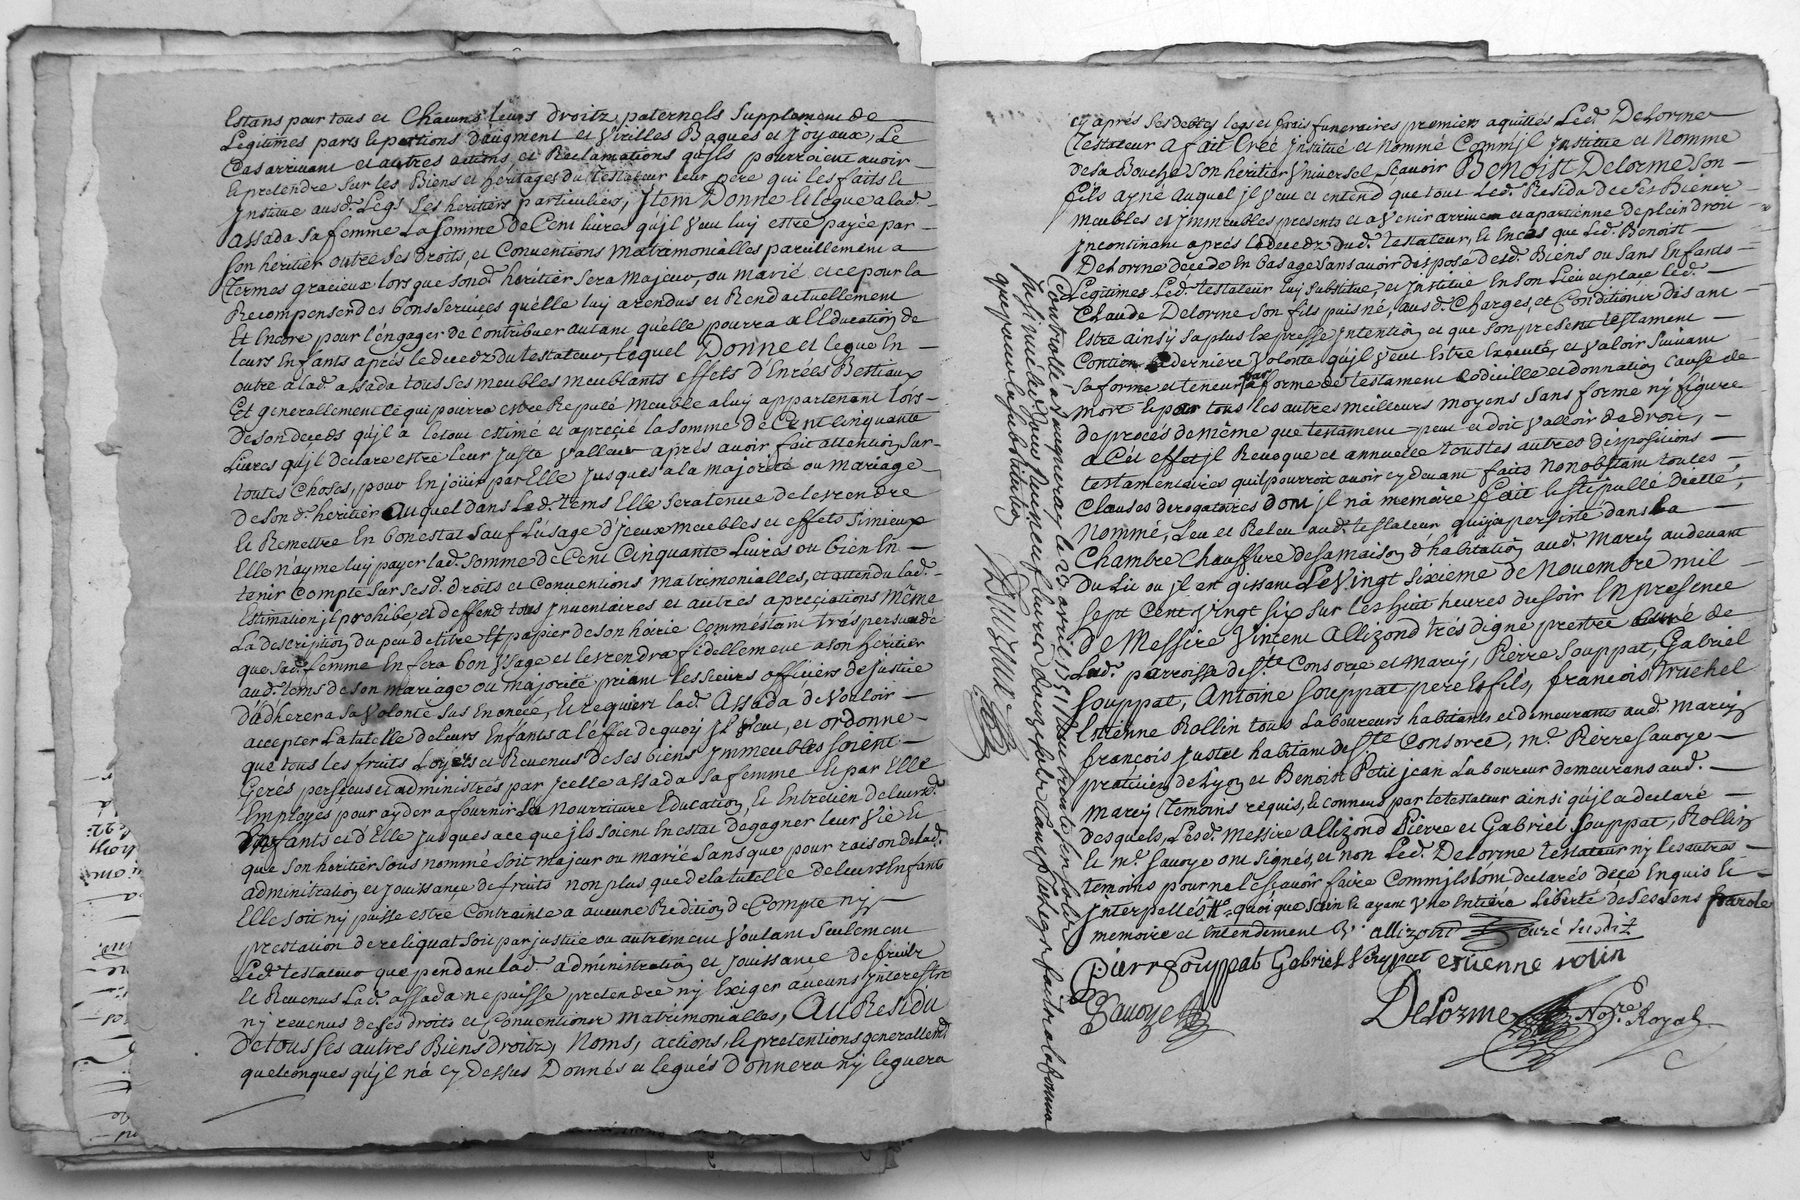 Estans pour tous et Chacuns leurs droitz paternels Supplement de
Legitimes parts et portions d'augment et Virilles Bagues et Joyaux, Le
Cas arrivant et autres actions et Reclamations qu'ils pourroient avoir
et pretendre sur les Biens et heritages du testateur leur pere qui les faits et
Institue ausd. Legs Ses heritiers particuliers, Item Donne et legue a lad.
assada sa femme La somme de Cent livres qu'il veut luy estre payée par
son heritier outre ses droits, et Conventions matrimonialles pareillement a
termes gracieux lors que sond. heritier sera majeur, ou marié et ce pour la
Recompenser des bons services qu'elle luy a rendus et Rend actuellement
Et Encore pour l'engager de Contribuer autant qu'elle pourra a l'Education de
leurs Enfants aprés le decedz du testateur, lequel Donne et legue En
outre a lad. assada tous ses meubles meublants effets d'Enrées Bestiaux
Et generallement ce qui pourra estre Reputé meuble a luy appartenant lors
de son deceds qu'il a le tout estimé et apreçié la somme de Cent cinquante
Livres qu'il declare estre leur juste valleur aprés avoir fait attention sur
toutes choses, pour En jouir par Elle jusques a la majorité ou mariage
de son d. heritier auquel dans Led. tems Elle sera tenue de les rendre
et Remettre En bon estat sauf l'usage d'iceux meubles et effets si mieux
Elle n'ayme luy payer lad. somme de Cent Cinquante Livres ou bien En
tenir compte sur sesd. droits et Conventions matrimonialles, et attendu lad.
Estimation jl prohibe et deffend tous Inventaires et autres apreciations même
La description du peu de titre et papier de son hoirie Comm'estant trés persuadé
que sad. femme En fera bon Usage et les rendra fidellement a son heritier
aud. tems de son mariage ou majorité priant les sieurs officiers de justice
d'adherer a sa volonté sus Enoncée, et requiert lad. Assada de vouloir
accepter La tutelle de leurs Enfants a l'effet de quoy Il veut, et ordonne
que tous les fruits Loyers et Revenus de ses biens Immeubles soient
Gerés perçeus et administrés par Jcelle assada sa femme et par Elle
Employés pour ayder a fournir La Nourriture Education et Entretien de leursd.
Enfants et d'Elle jusques a ce que jls soient En estat de gagner leur vie et
que son heritier sous nommé soit majeur ou marié sans que pour raison de lad.
administration et jouissance de fruits non plus que de la tutelle de leurs Enfants
Elle soit ny puisse estre Contrainte a aucune Reddition de Compte ny
prestation de reliquat soit par justice ou autrement Voulant seulement
Led. testateur que pendant lad. administration et jouissance de fruits
et Revenus Lad. assada ne puisse pretendre ny Exiger aucuns Interestz
ny revenus de ses droits et Conventions matrimonialles, Au Residu
de tous ses autres Biens droitz, Noms, actions, et pretentions generallemt.
quelconques qu'il n'a cy dessus Donnés et legués Donnera ny leguera
cy aprés ses debtes legs et frais funeraires premiers aquittés Led. Delorme
Testateur a fait Créé Institué et nommé Comm'il Institue et Nomme
de sa Bouche Son heritier Universel Scavoir Benoist Delorme son
fils ayné auquel jl veut et entend que tout Led. Residu de ses Biens
meubles et Immeubles presents et a venir arrive et apartienne de plein droit
Incontinant aprés le decedz dud. testateur, et En cas que Led. Benoist
Delorme decede En bas age sans avoir disposé desd. Biens ou sans Enfants
Legitimes Led. testateur luy substitue et Institue En son Lieu et place led.
Claude Delorme Son fils puisné, ausd. Charges, et Conditions disant
Estre ainsÿ sa plus Expresse Intention et que son present testament
Contien sa derniere Volonté qu'il veut Estre Executé, et valoir suivant
sa forme et teneur par forme de testament Codicille et donnation cause de
mort et par tous les autres meilleurs moyens sans forme ny figure
de procés de même que testament peut et doit valloir de droit,
a Cét effet jl Revoque et annulle toustes autres dispositions
testamentaires qu'il pourroit avoir cy devant faits nonobstant toutes
Clauses derogatoires dont jl n'a memoire fait et stipullé dicté,
Nommé, Leu et Releu aud. testateur qui y a persisté dans La
Chambre Chauffure de sa maison d'habitation aud. Marcy au devant
Du Lit ou jl en gissant Le Vingt sixieme de Novembre mil
sept Cent Vingt six sur les huit heures du soir En presence
de Messire Vintent Allizond trés digne prestre curé de
Lad. parroisse de Ste. Consorce et Marcy, Pierre Souppat, Gabriel
Souppat, Antoine Souppat pere Et fils, françois Trichel
Estienne Rollin tous Laboureurs habitants et demeurants aud. Marcy
françois Justet habitant de Ste. Consorce, me. Pierre Savoye
praticien de Lyon et Benoist Petit jean Laboureur demeurans aud.
Marcy Temoins requis, et connus par le testateur ainsi qu'jl a declaré
desquels, Lesd. Messire Allizond Pierre et Gabriel Souppat, Rollin
et me. Savoye ont signés, et non Led. Delorme testateur ny les autres
temoins pour ne l'esçavoir faire Comm'ils l'ont declarés de ce Enquis et
Interpellés quoi que sain et ayant Une Entiére Liberté de ses sens parole
memoire et entendement
allizond curé susdit
pierre souppat Gabriel souppat estienne rolin
Savoye
Delorme Nore. Royal
Controllé a vaugneray le 23 avril 1751
que pour la substitution